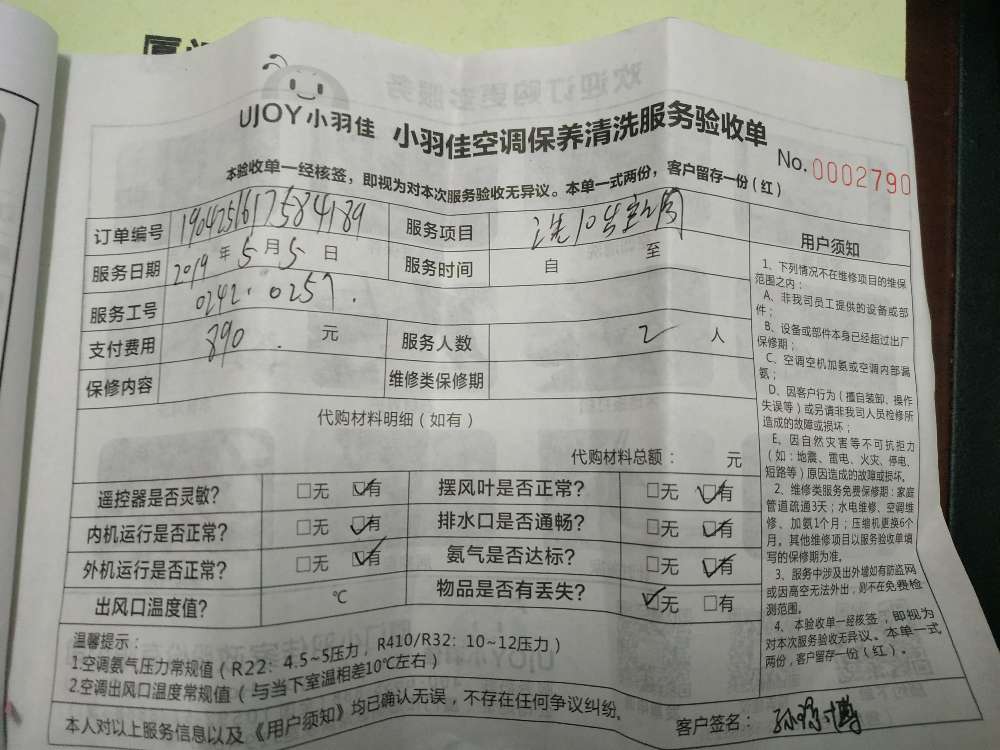 UJOY小羽佳
小羽佳空调保养清洗服务验收单
No. 0002790
本验收单一经核签，即视为对本次服务验收无异议。本单一式两份，客户留存一份（红）
订单编号 1904251617584189 服务项目 洗10台室内
服务日期 2019年5月5日 服务时间 自 至
服务工号 0242. 0257.
支付费用 890. 元 服务人数 2 人
保修内容 维修类保修期
代购材料明细（如有）
代购材料总额： 元
遥控器是否灵敏? □无 ☑有 摆风叶是否正常? □无 ☑有
内机运行是否正常? □无 ☑有 排水口是否通畅? □无 ☑有
外机运行是否正常? □无 ☑有 氨气是否达标? □无 ☑有
出风口温度值? ℃ 物品是否有丢失? ☑无 □有
温馨提示：
1.空调氨气压力常规值（R22：4.5~5压力，R410/R32：10~12压力）
2.空调出风口温度常规值（与当下室温相差10℃左右）
本人对以上服务信息以及《用户须知》均已确认无误，不存在任何争议纠纷。
客户签名：
用户须知
1、下列情况不在维修项目的维保
范围之内：
A、非我司员工提供的设备或部
件；
B、设备或部件本身已经超过出厂
保修期；
C、空调空机加氨或空调内部漏
氨；
D、因客户行为（擅自装卸、操作
失误等）或另请非我司人员检修所
造成的故障或损坏；
E、因自然灾害等不可抗拒力
（如：地震、雷电、火灾、停电、
短路等）原因造成的故障或损坏。
2、维修类服务免费保修期：家庭
管道疏通3天；水电维修、空调维
修、加氨1个月；压缩机更换6个
月。其他维修项目以服务验收单填
写的保修期为准。
3、服务中涉及出外墙如有防盗网
或因高空无法外出，则不在免费检
测范围。
4、本验收单一经核签，即视为
对本次服务验收无异议。本单一式
两份，客户留存一份（红）。